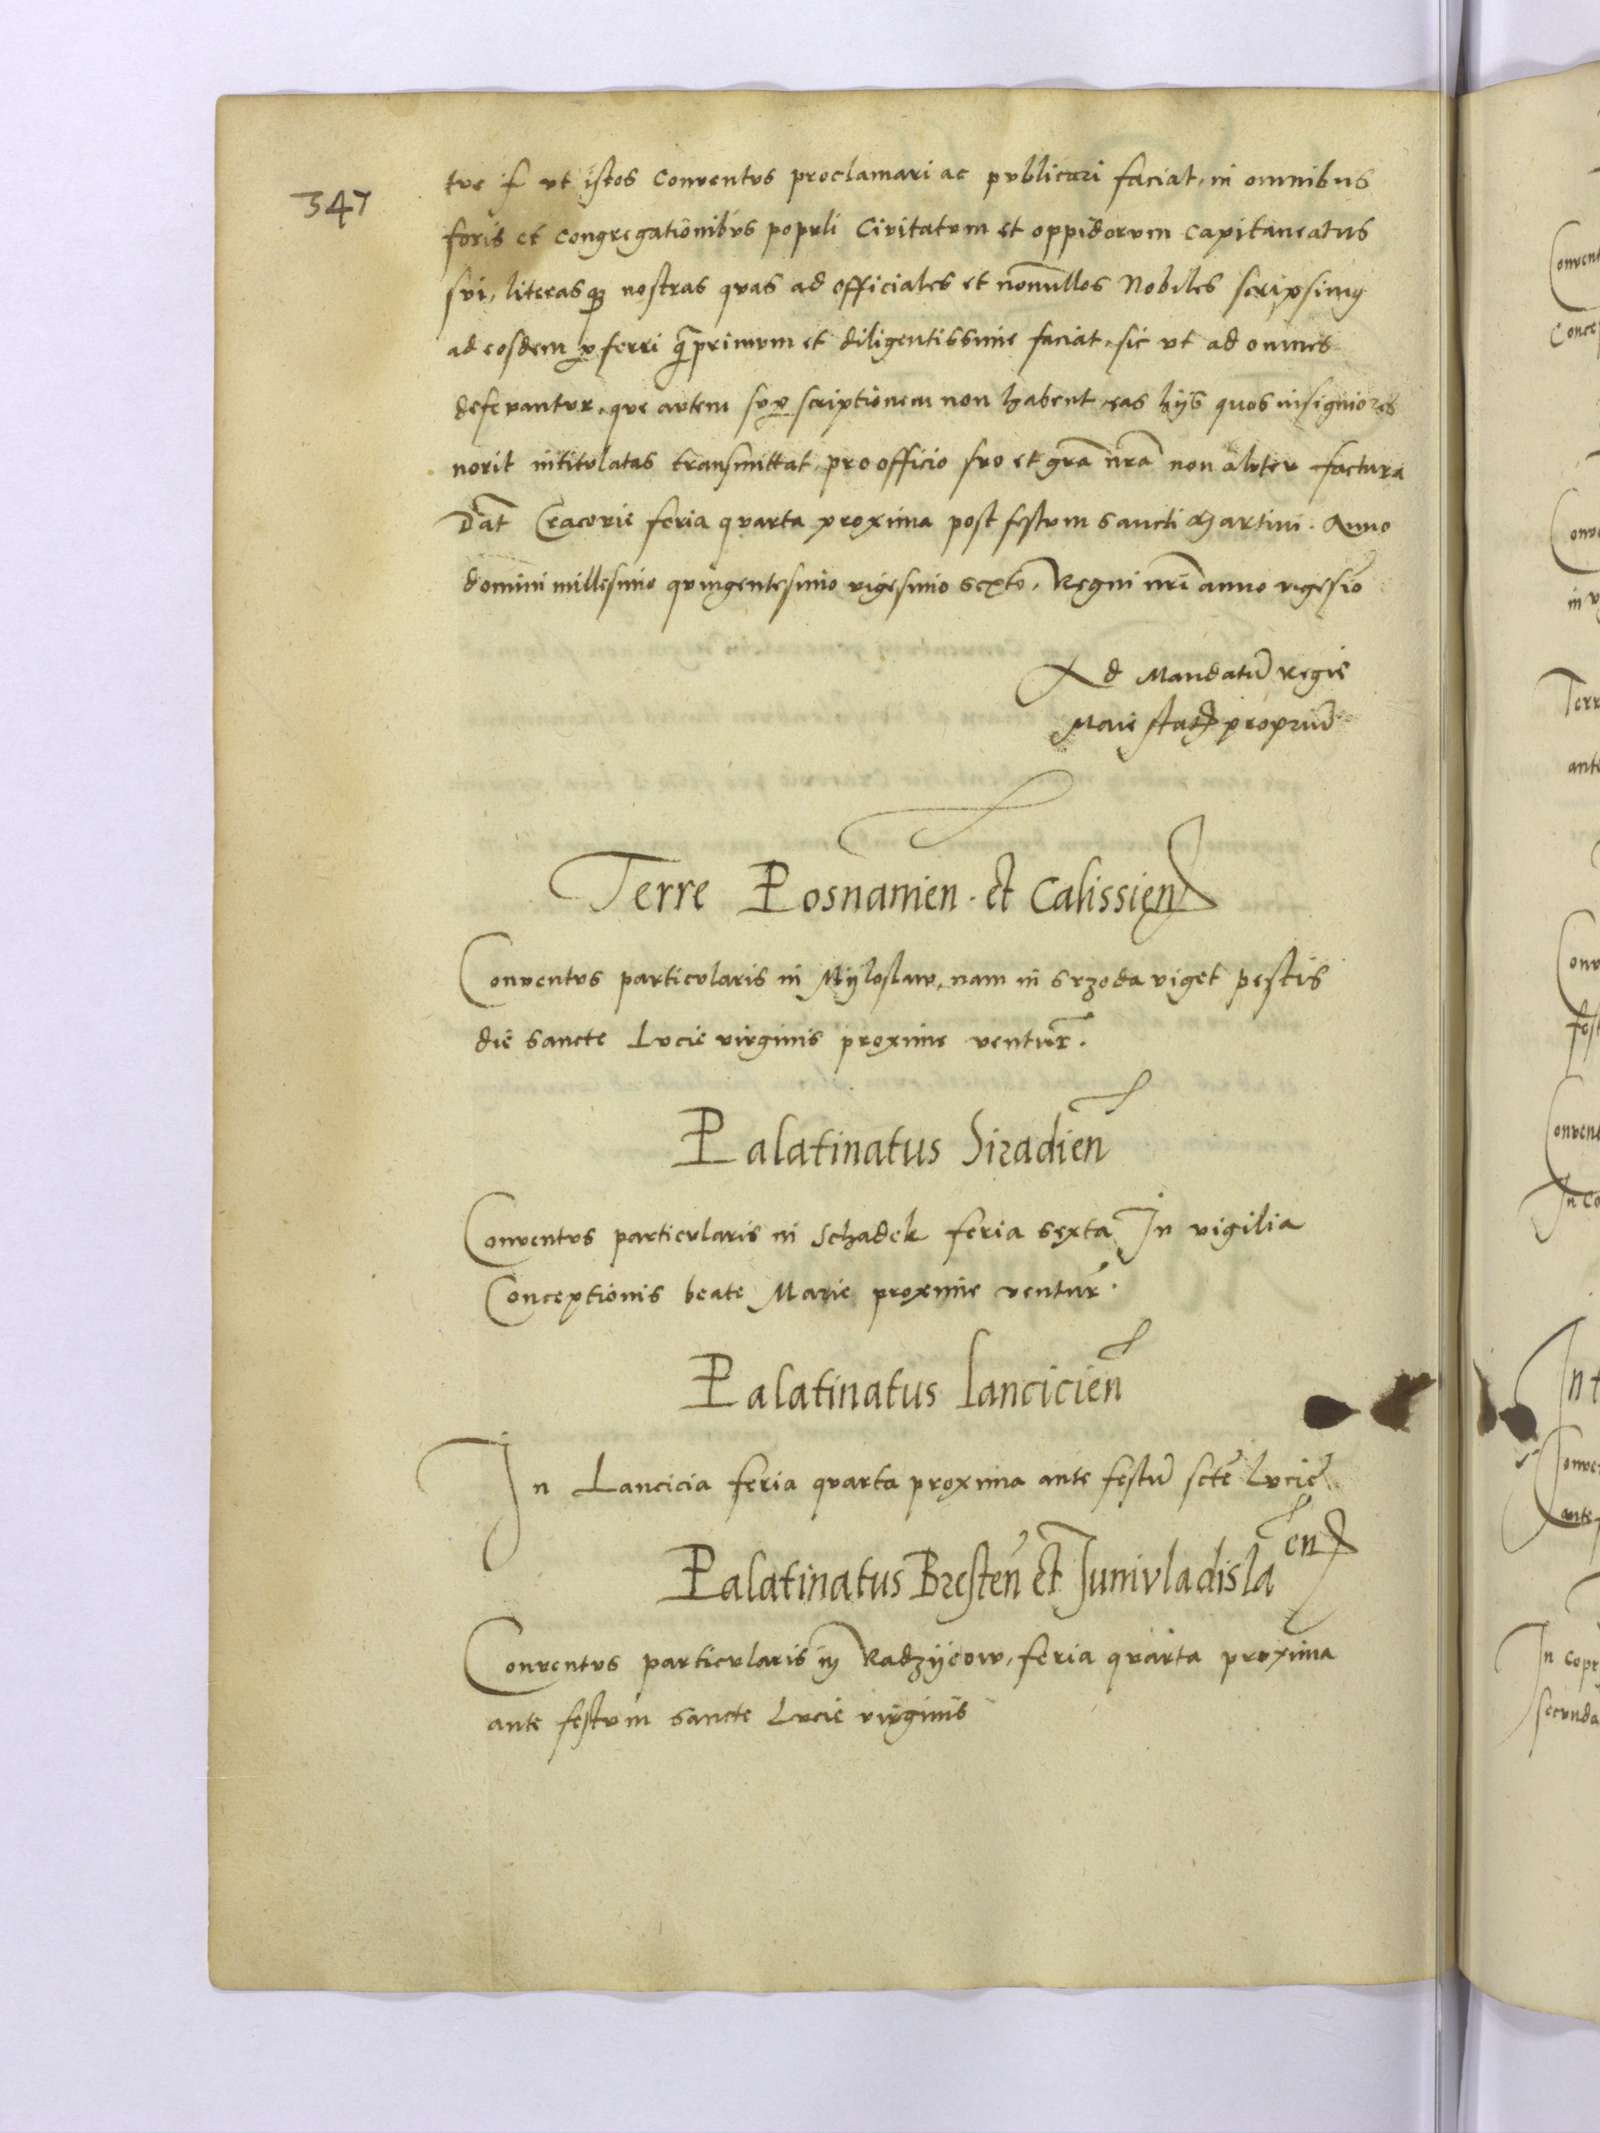 347
tve f vt istos Conventvs proclamari ac pvblicari faciat, in omnibvs
foris et congregationibvs popvli Civitatvm et oppidorvm capitaneatvs
svi, literasq3 nostras qvas ad officiales et nonnullos Nobiles scripsimq
ad eosdem pferri q̃primvm et diligentissime faciat, sic vt ad omnes
deferantvr, qve avtem svp scriptionem non habent, eas hijs quos insigniores
norit intitvlatas transmittat, pro officio svo et grã nrã non aliter factvra
Dat̃ Cracovie feria qvarta proxima post festvm sancti Martini. Anno
domini millesimo qvingentesimo vigesimo sexto, Regni nrĩ anno vigesĩo
Ad Mandatũ Regie
Maiestatis propriũ
Terre Posnanien. et Calissien
Conventvs particvlaris in Myloslaw, nam in Srzoda viget pestis
die sancte Lvcie virginis proxime ventur̃.
Palatinatus Siradien̄
Conventvs particvlaris in Schadek feria sexta In vigilia
Conceptionis beate Marie proxime ventur̃.
Palatinatus Lancicien̄
In Lancicia feria qvarta proxima ante festũ sctẽ Lvcie
Palatinatus Bresten̄ et Junivladislaen
Conventvs particvlaris in Radzyeow, feria qvarta proxima
ante festvm sancte Lvcie virginis